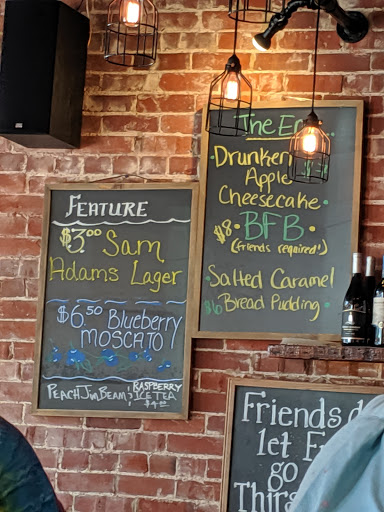 FEATURE
$3.00 Sam
Adams Lager
$6.50 Blueberry
MOSCATO
PEACH JIM BEAM & RASPBERRY
ICE TEA
The En
Drunken
Apple
Cheesecake
$8 BFB
(friends required!)
Salted Caramel
$6 Bread Pudding
Friends
let
go
Thirs